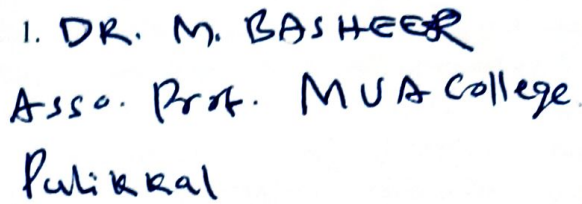 1. DR. M. BASHEER
Asso. Prof. MUA College.
Pulikkal